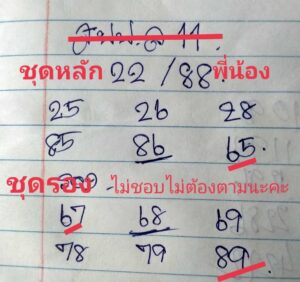 ชุดหลัก 22 / 88 พี่น้อง
25 26 28
85 86 65.
ชุดรอง - ไม่ชอบไม่ต้องตามนะคะ
67 68 69
78 79 89.